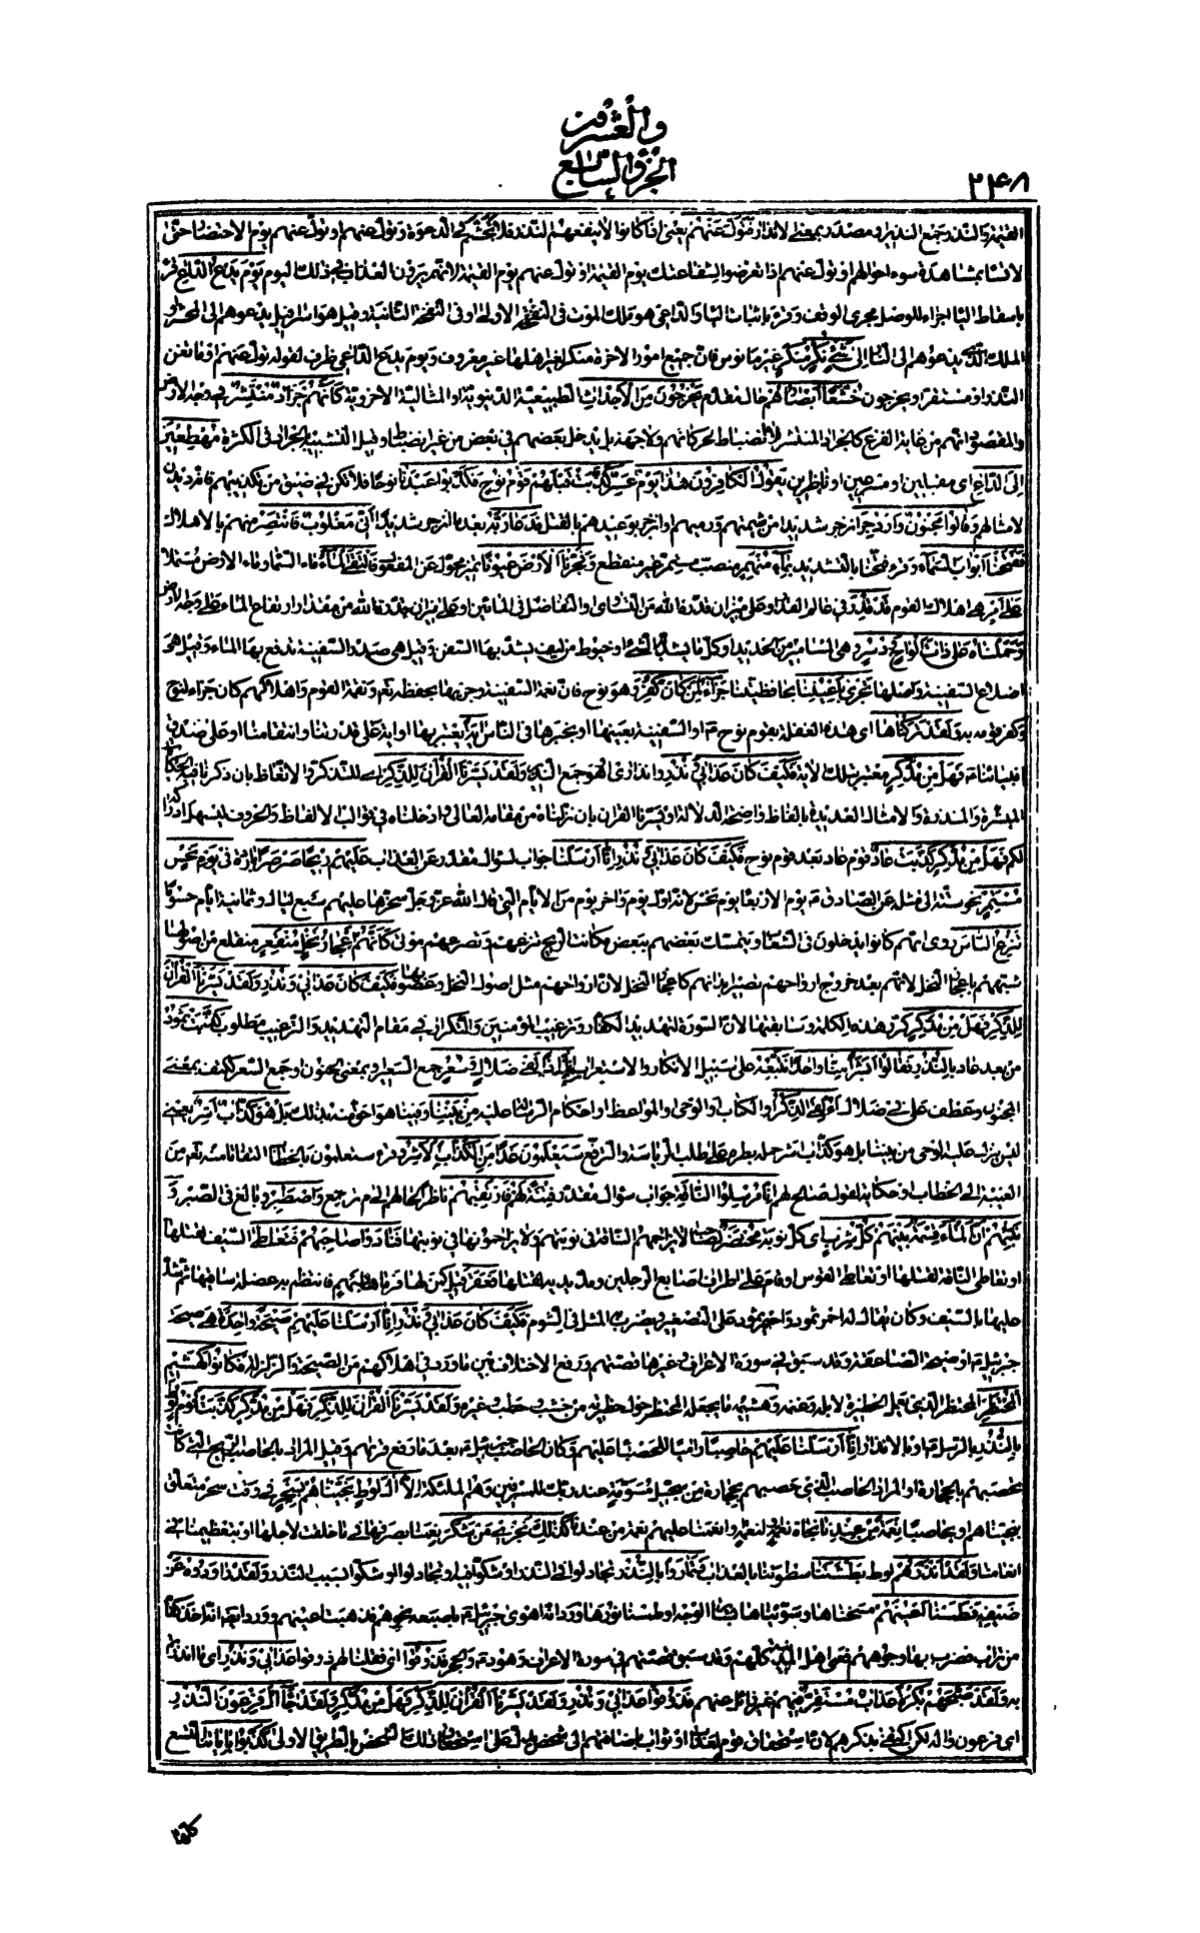 والعشرون
الجزء السابع
٢٤٨
القيمة والنذر جمع النذير ومصدر بمعنى الانذار فتول عنهم يعنى اذا كانوا لا ينفعهم النذر فلا تتجشم فى الدعوة وتول عنهم او تول عنهم يوم الاحتضار حتى
لا تتا بمشاهدة سوء احوالهم او تول عنهم اذا تعرضوا لشفاعتك يوم القيمة او تول عنهم يوم القيمة لانهم يرون العذاب فى ذلك اليوم يوم يدع الداع قرء
باسقاط الياء اجراء للوصل مجرى الوقف وقرء باثبات الياء والداعى هو ملك الموت فى النفخة الاولى او فى النفخة الثانية وقيل هو اسرافيل يدعوهم الى المحشر او
الملك الذى يدعوهم الى النار الى شىء نكر منكر غير مانوس فان جميع امور الاخرة منكر لغير اهلها غير معروف ويوم يدع الداعى ظرف لقوله تول عنهم او فما تغن
النذر او مستقر او يخرجون خشعا ابصارهم حال مقدم يخرجون من الاجداث الطبيعية الدنيوية او المثالية الاخروية كانهم جراد منتشر فى وجه الارض
والمقصود انهم من غاية الفزع كالجراد المنتشر لا انضباط لحركاتهم ولا جهة بل يدخل بعضهم فى بعض من غير انضباط وقيل التشبيه بالجراد فى الكثرة مهطعين
الى الداع اى مقبلين او مسرعين او ناظرين يقول الكافرون هذا يوم عسر كذبت قبلهم قوم نوح فكذبوا عبدنا نوحا فلا تكن فى ضيق من تكذيبهم فانه ديدن
لامثالهم وقالوا مجنون وازدجر انزجر شديدا من شتمهم ورميهم او انزجر بوعيدهم بالقتل فدعا ربه بعد ما انزجر شديدا انى مغلوب فانتصر منهم بالاهلاك
ففتحنا ابواب السماء وقرء فتحنا بالتشديد بماء منهمر منصب سيمر غير منقطع وفجرنا الارض عيونا تميز محول عن المفعول فالتقى الماء ماء السماء وماء الارض مسلا
على امر هى اهلاك القوم قد قدر فى عالم القدر او على ميزان قدره الله من التساوى والتفاضل فى المائين او على ميزان قدره الله من مقدار ارتفاع الماء على وجه الارض
وحملناه على ذات الواح ودسر هى المسامير من الحديد او كل ما يشد به الشىء او خيوط من ليف يشد بها السفن وقيل هى صدر السفينة تدفع بها الماء وقيل هى
اضلاع السفينة واصلها تجرى باعيننا بحافظيتنا جزاء لمن كان كفر وهو نوح فان نعمة السفينة وجريها بحفظه تعم ونقمة القوم واهلاكهم كان جزاء لنوح
وكفر قومه به ولقد تركناها اى هذه الفعلة بقوم نوح او السفينة بعينها او بخبرها فى الناس اية يعتبر بها او اية على قدرتنا وانتقامنا او على صدق
انبيائنا فهل من مدكر معتبر بتلك الاية فكيف كان عذابى ونذر وانذارى او هو جمع النذير ولقد يسرنا القران للذكر اى للتذكرة والاتعاظ بان ذكرنا فيه الحكايات
المبشرة والمنذرة والامثال العديدة بالفاظ واضحة الدلالة او يسرنا القران بان نزلناه من مقامه العالى وادخلناه فى قوالب الالفاظ والحروف ليسهل ادراكه
لكم فهل من مدكر كذبت عاد قوم عاد بعد قوم نوح فكيف كان عذابى ونذر انا ارسلنا جواب لسؤال مقدر عن العذاب عليهم ريحا صرصرا باردة فى يوم نحس
مستمر نحوسته الى مثله عن الصادق يوم الاربعاء يوم نحس لانه اول يوم واخر يوم من الايام التى قال الله عز وجل سخرها عليهم سبع ليال وثمانية ايام حسوما
تنزع الناس روى انهم كانوا يدخلون فى الشعاب ويتمسك بعضهم ببعض وكانت الريح تنزعهم وتصرعهم موتى كانهم اعجاز نخل منقعر منقلع من اصولها
شبههم باعجاز النخل لانهم بعد خروج ارواحهم تصير ابدانهم كاعجاز النخل لان ارواحهم مثل اصول النخل وغصونها فكيف كان عذابى ونذر ولقد يسرنا القران
للذكر فهل من مدكر كرر هذه الكلمة وسابقتها لان السورة لتهديد الكفار وترغيب المؤمنين والتكرار فى مقام التهديد والترغيب مطلوب كذبت ثمود
من بعد عاد بالنذر فقالوا ابشرا منا واحدا نتبعه على سبيل الانكار والاستغراب انا اذا لفى ضلال وسعر جمع السعير او بمعنى الجنون وجمع السعر ككتف بمعنى
المجنون وعطف على فى ضلال ءالقى الذكر او الكتاب او الوحى والمواعظ او احكام الرسالة عليه من بيننا وفينا هو احق منه بذلك بل هو كذاب اشر يعنى
ليس ينزل عليه الوحى من بيننا بل هو كذاب اشر حمله بطره على طلب الرياسة والترفع سيعلمون غدا من الكذاب الاشر وقرء ستعلمون بالخطاب التفاتا منه تعالى من
الغيبة الى الخطاب او حكاية لقول صالح لهم انا مرسلوا الناقة جواب سؤال مقدر فتنة لهم فارتقبهم ناظرا لحالهم الى م ترجيع واصطبر وبالغ فى الصبر و
نبئهم ان الماء قسمة بينهم كل شرب اى كل نوبة محتضر لصاحبه لا يزاحمهم الناقة فى نوبتهم ولا يزاحمونها فى نوبتها فنادوا صاحبهم فتعاطى السيف لقتلها
او تعاطى الناقة لقتلها او تعاطى القوس او قام على اطراف اصابع الرجلين ومد يديه لقتلها فعقر قيل كمن لها فرماها بسهم فانتظم به عضلة ساقها ثم شد
عليها بالسيف وكان يقال له احمر ثمود واحيمر ثمود على التصغير ويضرب به المثل فى الشوم فكيف كان عذابى ونذر انا ارسلنا عليهم صيحة واحدة هى صيحة
جبرئيل او صيحة الصاعقة وقد سبق فى سورة الاعراف وغيرها قصتهم ورفع الاختلاف بين ما ورد فى اهلاكهم من الصيحة والزلزلة فكانوا كهشيم
المحتظر المحتظر الذى يعمل الحظيرة لابله وغنمه وهشيمه ما يجعله المحتظر حول حظيرته من خشب وحطب وغيره ولقد يسرنا القران للذكر فهل من مدكر كذبت قوم لوط
بالنذر بالرسل او بالانذار انا ارسلنا عليهم حاصبا راميا للحصباء عليهم وكان الحاصب جبرئيل بعد ما رفع قريتهم وقيل المراد بالحاصب الريح التى كانت
تحصبهم بالحجارة او المراد الحاصب الذى حصبهم بحجارة من سجيل مسومة عند ربك للمسرفين وهم الملئكة الا ال لوط نجيناهم بسحر فى وقت سحر متعلق
بنجيناهم او بحاصبا نعمة من عندنا نجاة نعمة او انعمنا عليهم نعمة من عندنا كذلك نجزى من شكر نعمتنا بصرفها فى ما خلقت لاجلها او بتعظيمنا فى
انعامنا ولقد انذرهم لوط بطشتنا سطوتنا بالعذاب فتماروا بالنذر تجادلوا فى النذر او شكوا فيها او تجادلوا او شكوا بسبب النذر ولقد راودوه عن
ضيفه فطمسنا اعينهم مسحناها وسويناها بسائر الوجه او طمسنا نورها ورد انه اهوى جبرئيل باصبعه نحوهم فذهبت اعينهم وورد انه اخذ كفا
من تراب فضرب بها وجوههم فعمى اهل المدينة كلهم وقد سبق قصتهم فى سورة الاعراف وهود والحجر فذوقوا اى فقلنا لهم ذوقوا عذابى ونذر اى ما انذرتم
به ولقد صبحهم بكرة عذاب مستقر فيهم غير زائل عنهم فذوقوا عذابى ونذر ولقد يسرنا القران للذكر فهل من مدكر ولقد جاء ال فرعون النذر
اى فرعون واله لكن اكتفى بذكرهم لان استحقاق قوم لعذاب او ثواب بانضيافهم الى شخص دليل على استحقاق ذلك الشخص بالطريق الاولى كذبوا باياتنا التسع
كلها